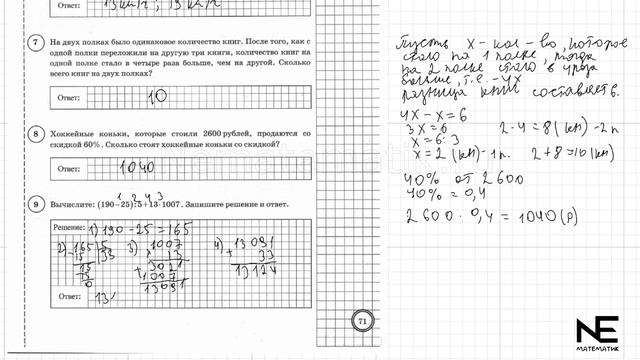 Ответ: 13 км/ч; 15 км/ч
7 На двух полках было одинаковое количество книг. После того, как с
одной полки переложили на другую три книги, количество книг на
одной полке стало в четыре раза больше, чем на другой. Сколько
всего книг на двух полках?
Ответ: 10
8 Хоккейные коньки, которые стоили 2600 рублей, продаются со
скидкой 60%. Сколько стоят хоккейные коньки со скидкой?
Ответ: 1040
1 2 4 3
9 Вычислите: (190−25):5+13·1007. Запишите решение и ответ.
Решение: 1) 190 - 25 = 165
2) 165 5
15 33
15
15
0
3) 1007
× 13
3021
+ 1007
13091
4) + 13091
33
13124
Ответ: 13
71
Пусть x - кол-во, которое
стало на 1 полке, тогда
на 2 полке стало в 4 раза
больше, т.е. - 4x
разница книг составляет 6.
4x - x = 6
3x = 6
x = 6 : 3
x = 2 (кн) - 1 п.
2 · 4 = 8 (кн) - 2 п
2 + 8 = 10 (кн)
40% от 2600
40% = 0,4
2600 · 0,4 = 1040 (р)
NE
МАТЕМАТИК